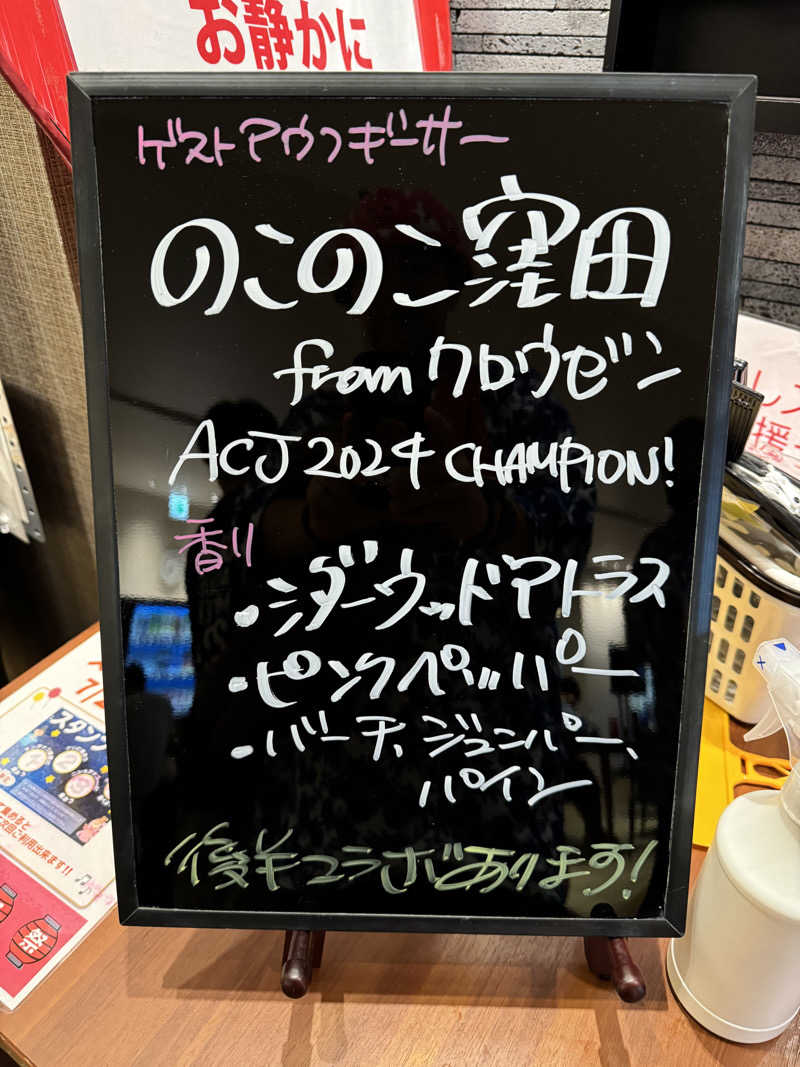 お静かに
ゲストアウフギーサー
のこのこ窪田
from クロウゼン
ACJ 2024 CHAMPION!
香り
・シダーウッドアトラス
・ピンクペッパー
・バーチ、ジュニパー、
パイン
後半コラボあります!
スタンプ
集めると
次回ご利用出来ます!!
祭
レス
援